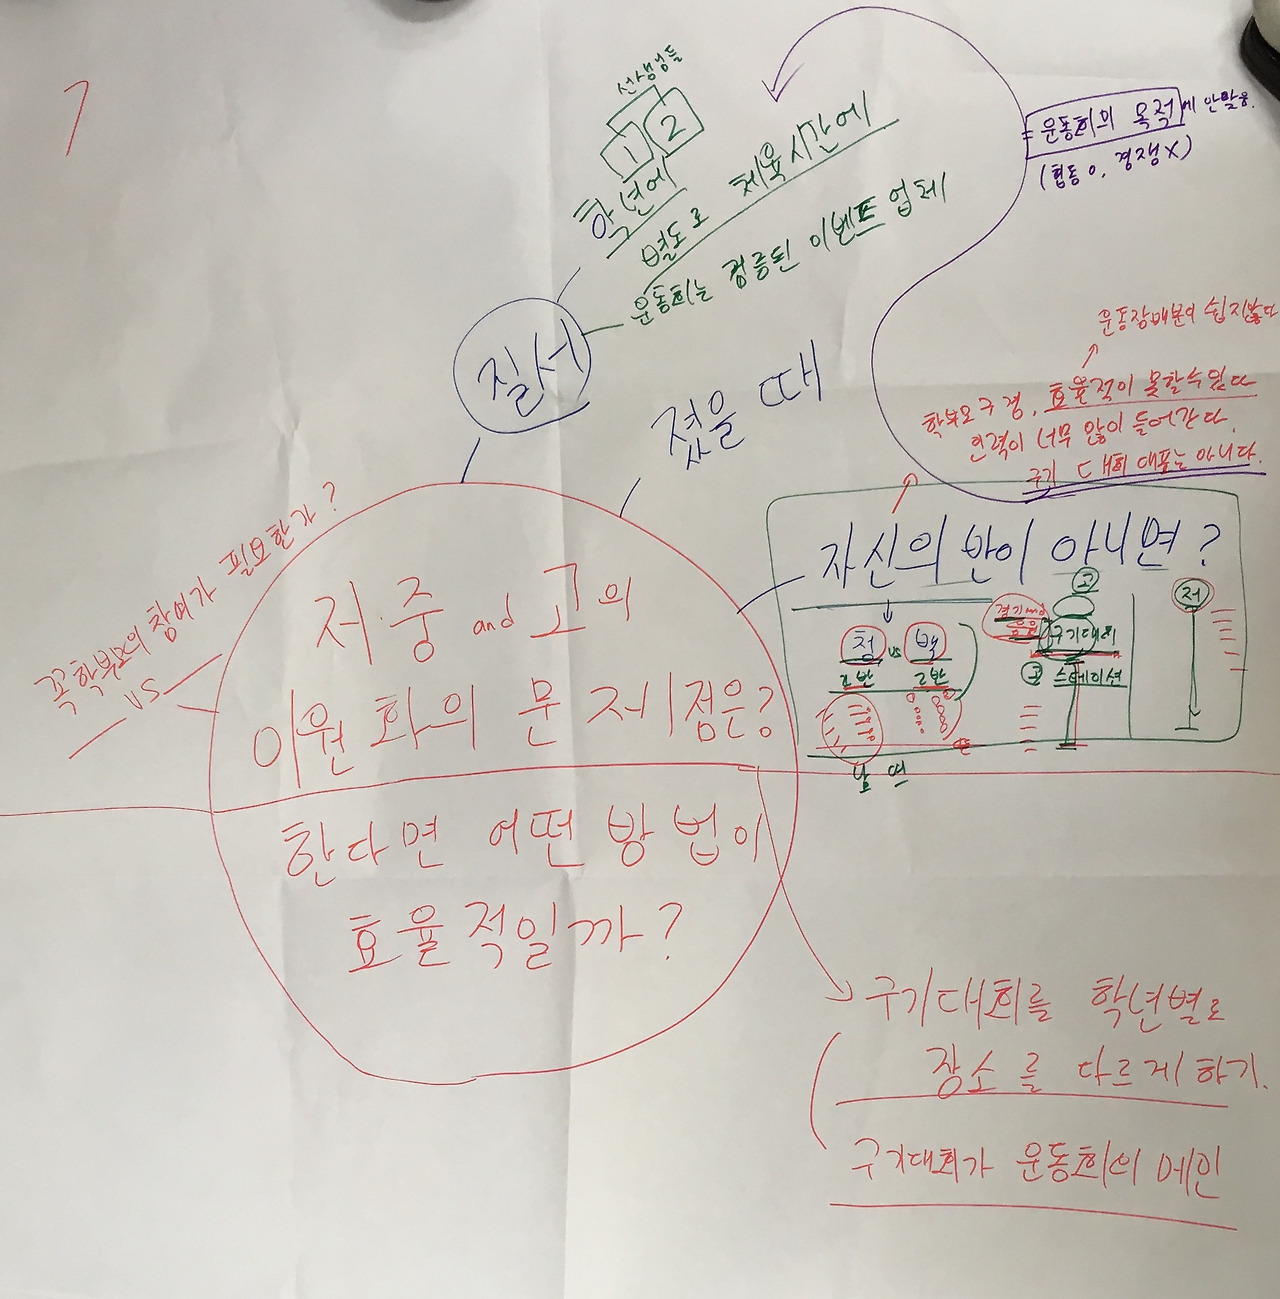 선생님들
1 2
학년에
별도로 체육시간에
운동회는 검증된 이벤트 업체
= 운동회의 목적에 안맞음.
(협동 O, 경쟁 X)
질서
졌을 때
운동장 배분이 쉽지 않다
학부모 구경, 효율적이 못할 수 있다
인력이 너무 많이 들어간다.
구기 대회 대표는 아니다.
자신의 반이 아니면?
청 vs 백
2반 2반
남 여
경기 and
구기대회
스테이션
고
저
꼭 학부모의 참여가 필요한가?
VS
저·중 and 고의
이원화의 문제점은?
한다면 어떤 방법이
효율적일까?
구기대회를 학년별로
장소를 다르게 하기.
구기대회가 운동회의 메인